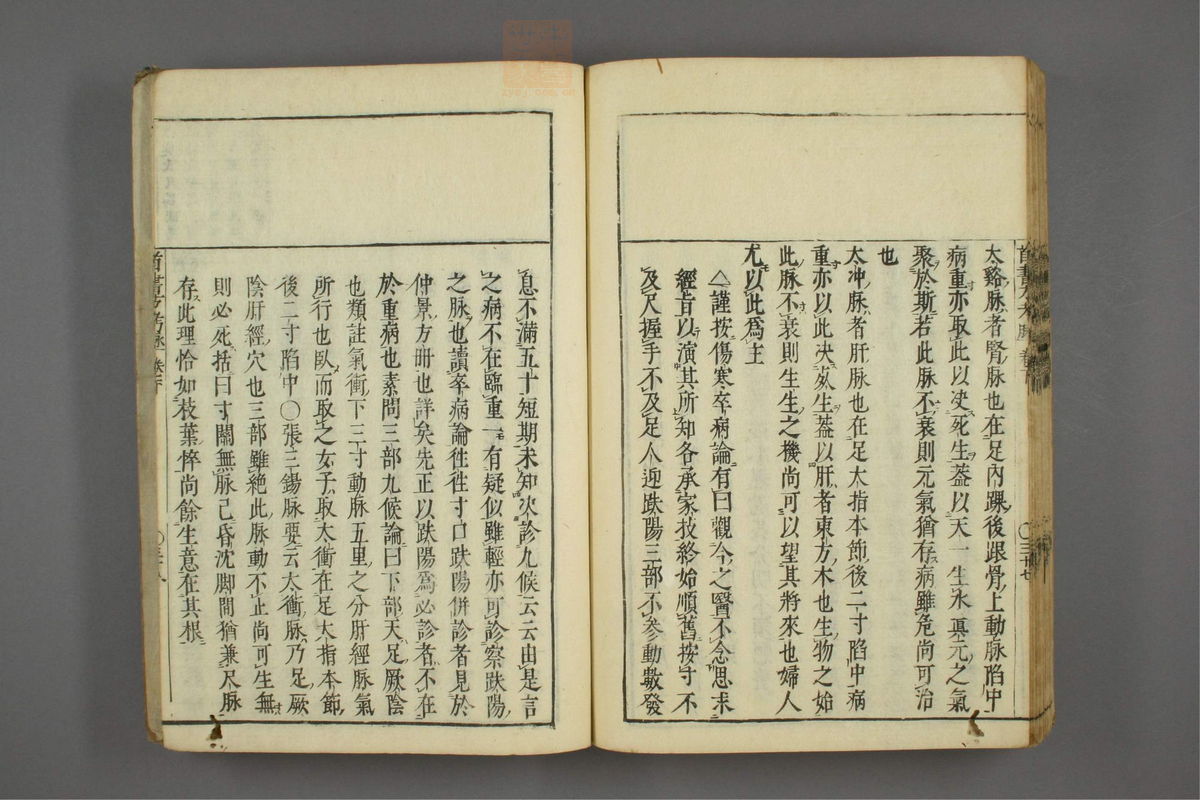 太谿脉者腎脉也在足內踝後跟骨上動脉陷中
病重亦取此以决死生蓋以天一生水眞元之氣
聚於斯若此脉不衰則元氣猶存病雖危尚可治
也
太冲脉者肝脉也在足大指本節後二寸陷中病
重亦以此决死生蓋以肝者東方木也生物之始
此脉不衰則生生之機尚可以望其將來也婦人
尤以此爲主
△謹按傷寒卒病論有曰觀今之醫不念思求
經旨以演其所知各承家技終始順舊按寸不
及尺握手不及足人迎趺陽三部不參動數發
息不滿五十短期未知决診九候云云由是言
之病不在臨重一有疑似雖輕亦可診察趺陽
之脉也讀卒病論徃徃寸口趺陽併診者見於
仲景方冊也詳矣先正以趺陽爲必診者不在
於重病也素問三部九候論曰下部天足厥陰
也類註氣衝下三寸動脉五里之分肝經脉氣
所行也臥而取之女子取太衝在足大指本節
後二寸陷中〇張三錫脉要云太衝脉乃足厥
陰肝經穴也三部雖絶此脉動不止尚可生無
則必死括曰寸關無脉已昏沈脚間猶兼尺脉
存此理恰如枝葉悴尚餘生意在其根